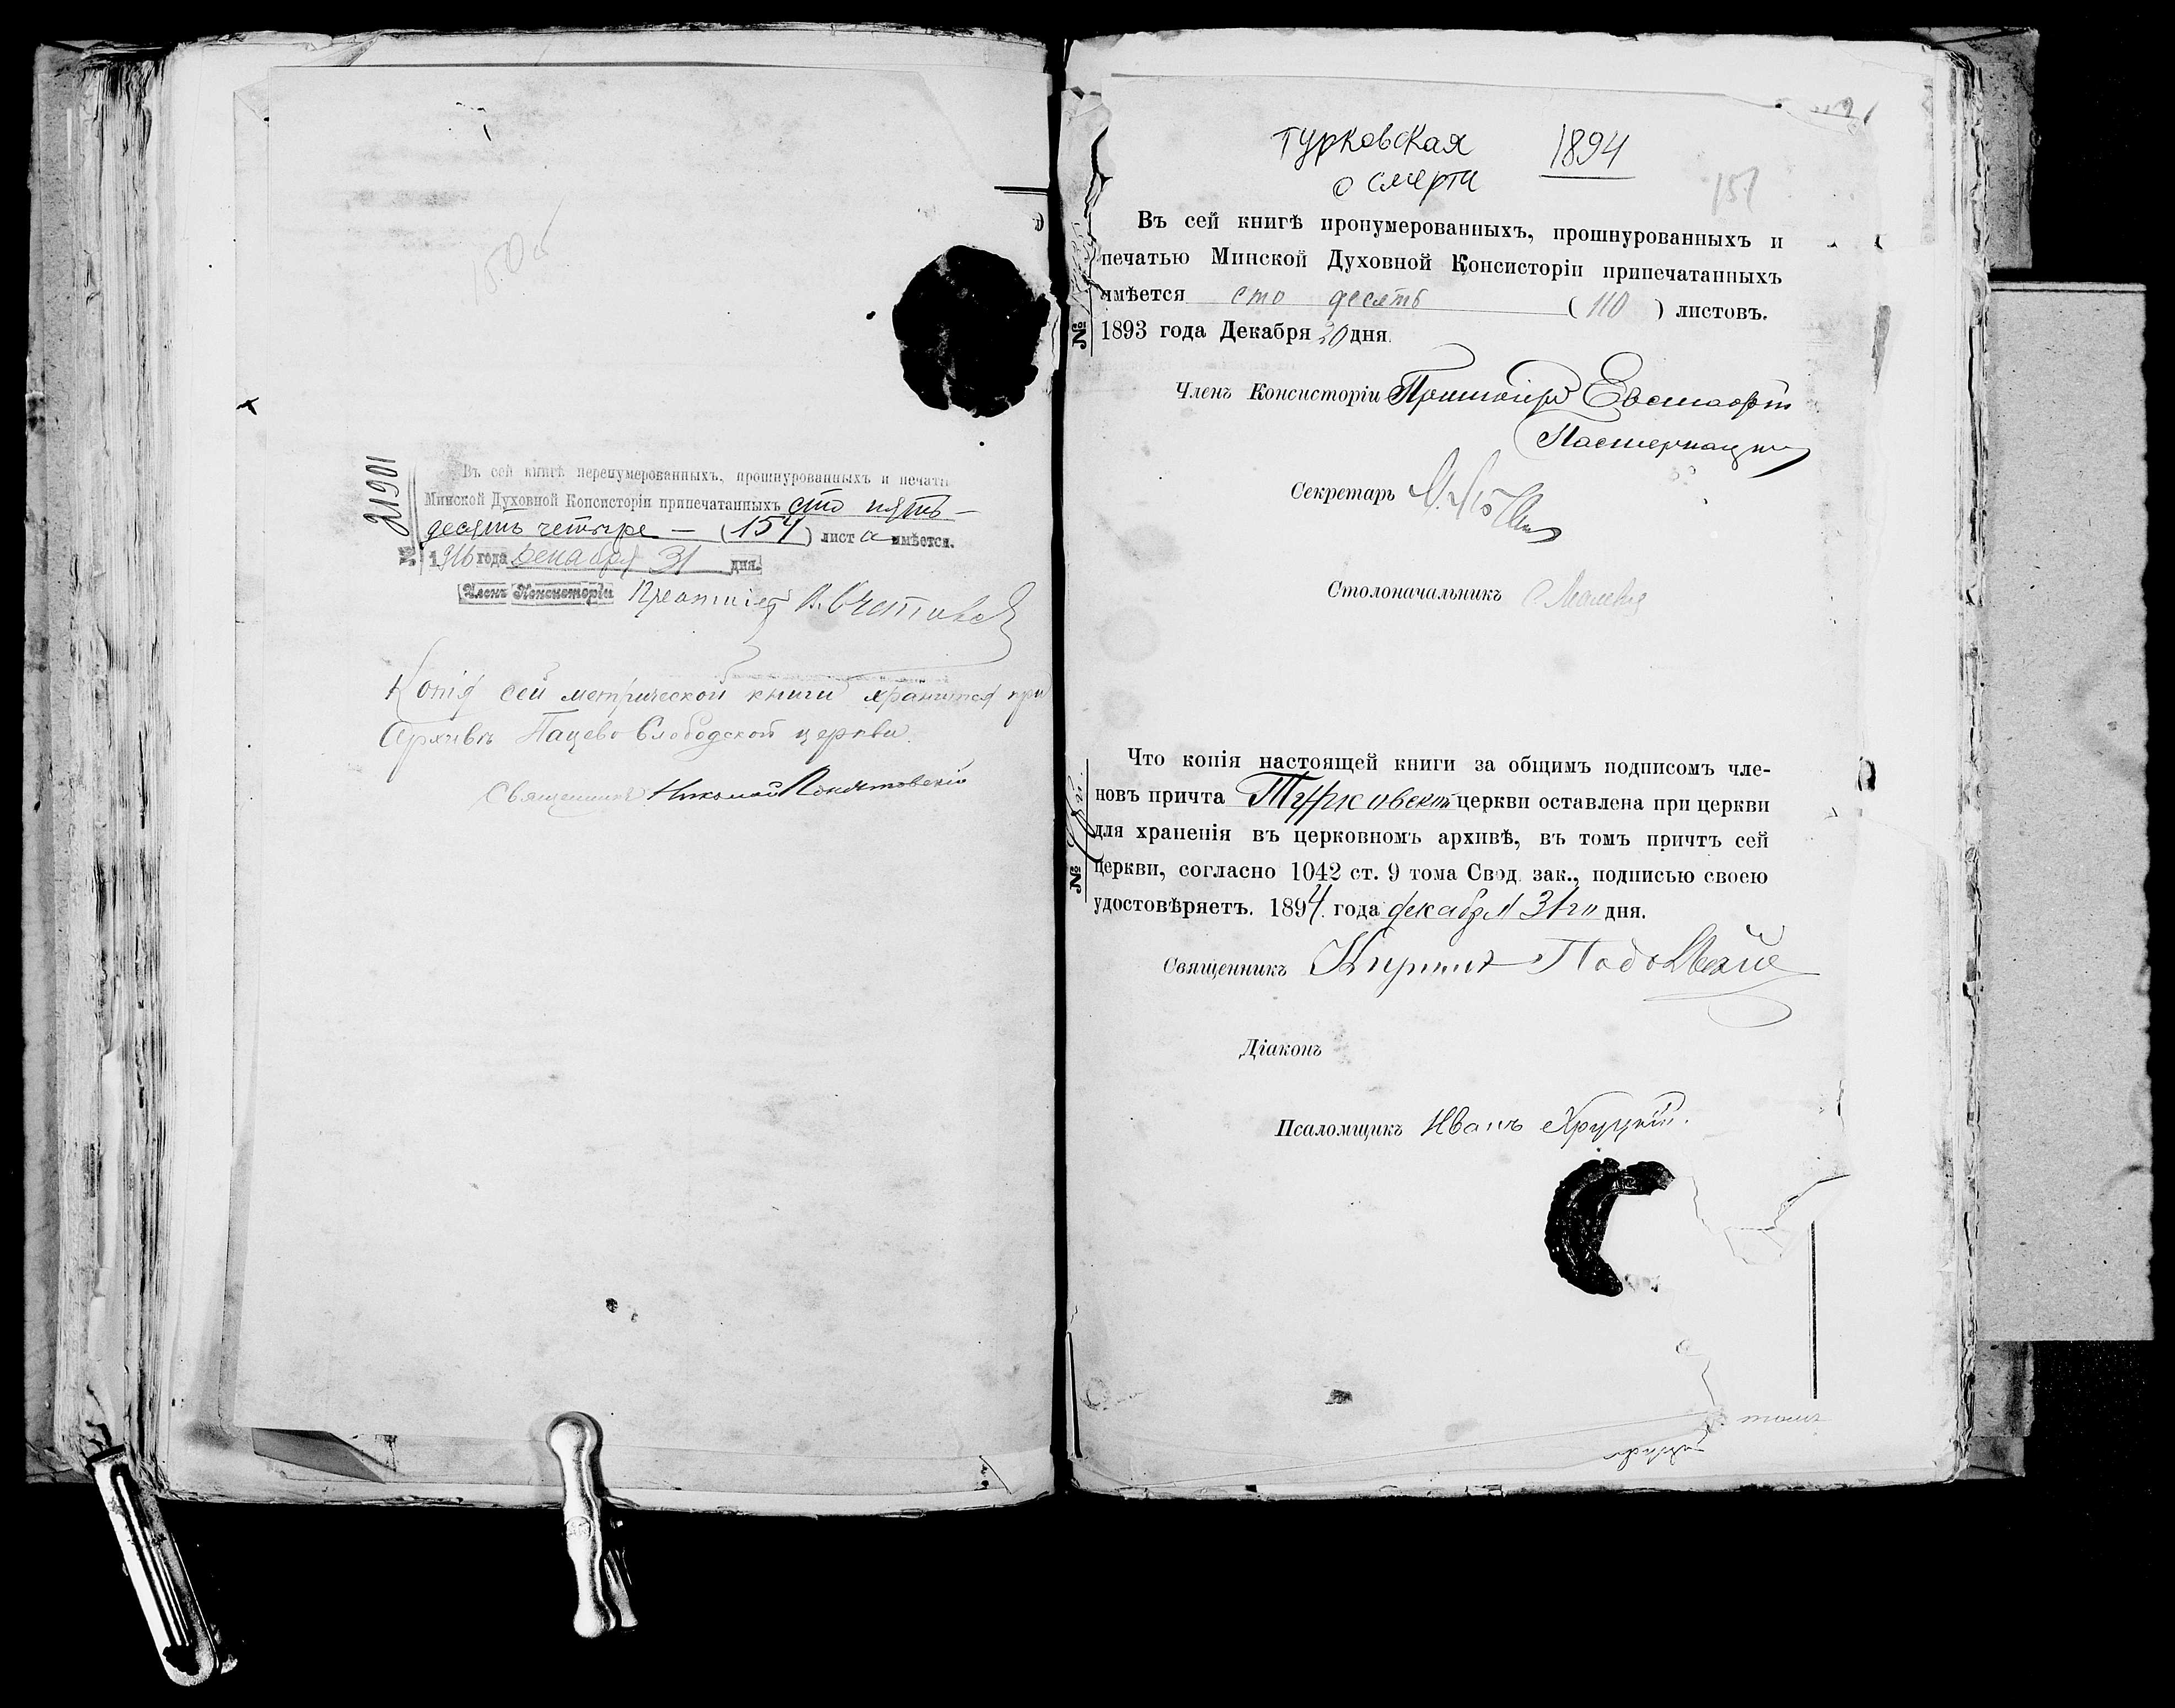 № 21901
Въ сей книгѣ перенумерованныхъ, прошнурованныхъ и печатью
Минской Духовной Консисторіи припечатанныхъ сто пять-
десятъ четыре — (154) листа имѣется.
1916 года Декабря 31 дня.
Членъ Консисторіи
Копія сей метрической книги хранится при
Архивѣ Пацево Слободской церкви.
Священникъ Николай
Турковская 1894
о смерти
151
Въ сей книгѣ пронумерованныхъ, прошнурованныхъ и
печатью Минской Духовной Консисторіи припечатанныхъ
имѣется сто десять (110) листовъ.
№ 1893 года Декабря 20 дня.
Членъ Консисторіи Протоіерей Евстафій
Секретарь
Столоначальникъ
Что копія настоящей книги за общимъ подписомъ чле-
новъ причта Турковской церкви оставлена при церкви
для храненія въ церковномъ архивѣ, въ томъ причтъ сей
№ церкви, согласно 1042 ст. 9 тома Свод. зак., подписью своею
удостовѣряетъ. 1894. года декабря 31го дня.
Священникъ Кириллъ
Діаконъ
Псаломщикъ Иванъ Хруцкій.